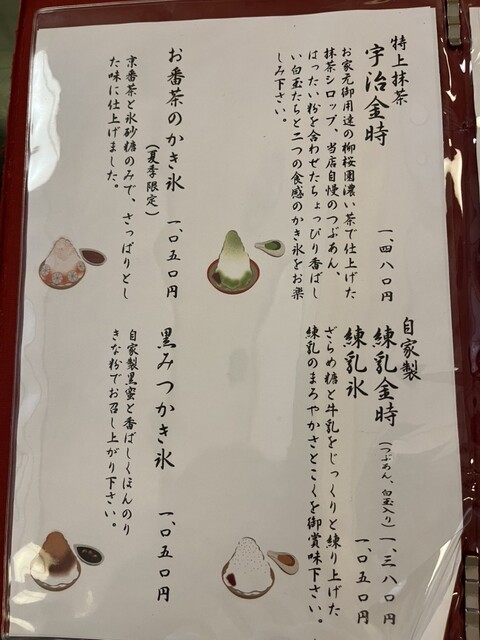 特上抹茶
宇治金時
一、四八〇円
お家元御用達の柳桜園濃い茶で仕上げた
抹茶シロップ、当店自慢のつぶあん、
はったい粉を合わせたちょっぴり香ばし
い白玉たちと二つの食感のかき氷をお楽
しみ下さい。
お番茶のかき氷
(夏季限定)
一、〇五〇円
京番茶と氷砂糖のみで、さっぱりとし
た味に仕上げました。
自家製
練乳金時
(つぶあん、白玉入り)
一、三八〇円
練乳氷
一、〇五〇円
ざらめ糖と牛乳をじっくりと練り上げた
練乳のまろやかさとこくを御賞味下さい。
黒みつかき氷
一、〇五〇円
自家製黒蜜と香ばしくほんのり
きな粉でお召し上がり下さい。